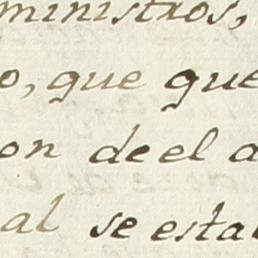 ministros,
o, que que
on de el a
al se esta